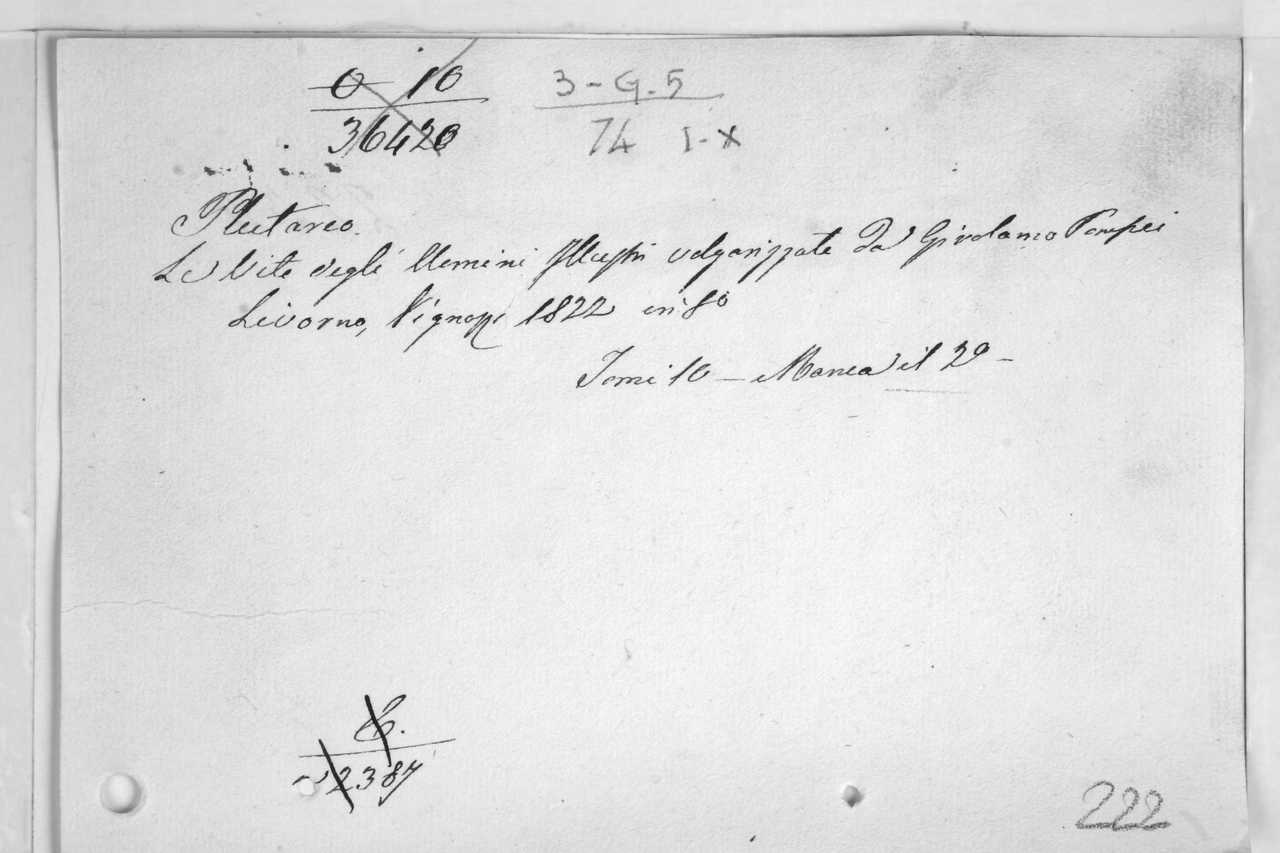 O 10
36420
3-G.5
74 I-X
Plutarco.
Le Vite degli Uomini Illustri volgarizzate da Girolamo Pompei
Livorno, Vignozzi 1822 in 8o
Tomi 10 — Manca il 2o —
2387
222